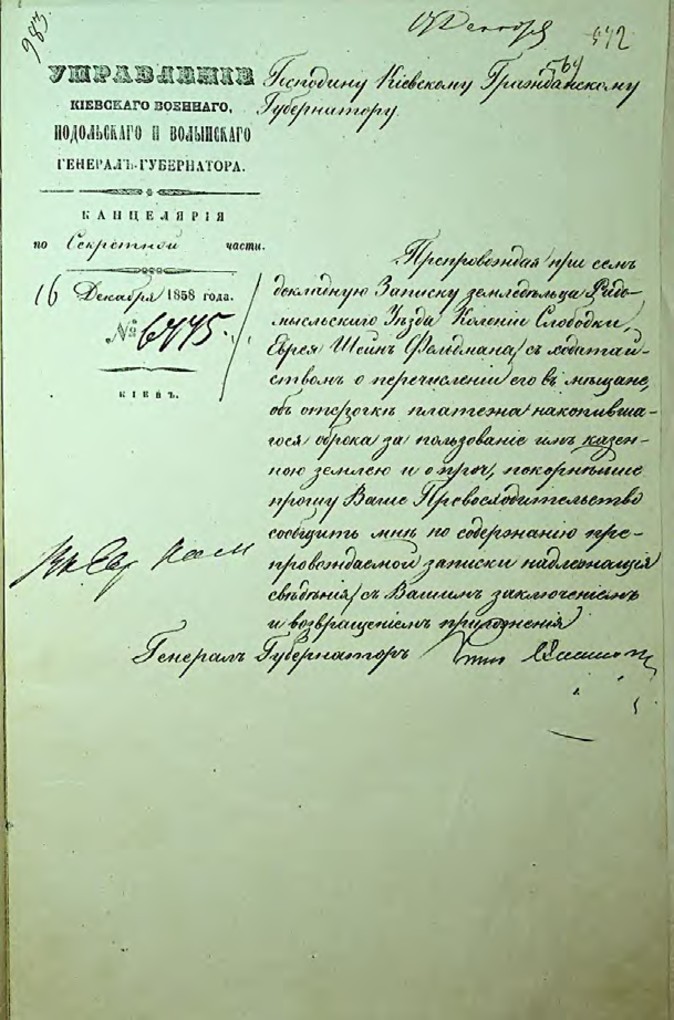 983.
17 Декабря
572
564
УПРАВЛЕНІЕ
КІЕВСКАГО ВОЕННАГО,
ПОДОЛЬСКАГО И ВОЛЫНСКАГО
ГЕНЕРАЛЪ-ГУБЕРНАТОРА.
КАНЦЕЛЯРІЯ
по Секретной части.
16 Декабря 1858 года.
№ 6445.
КІЕВЪ.
Господину Кіевскому Гражданскому
Губернатору.
Препровождая при семъ
докладную Записку земледѣльца Радо-
мысльскаго Уѣзда Колоніи Слободки,
Еврея Фельдмана, съ ходатай-
ствомъ о перечисленіи его въ мѣщане,
объ отсрочкѣ платежа накопивша-
гося оброка за пользованіе имъ казен-
ною землею и о проч, покорнѣйше
прошу Ваше Превосходительство
сообщить мнѣ по содержанію пре-
провождаемой записки надлежащія
свѣдѣнія, съ Вашимъ заключеніемъ
и возвращеніемъ приложенія
Генералъ Губернаторъ